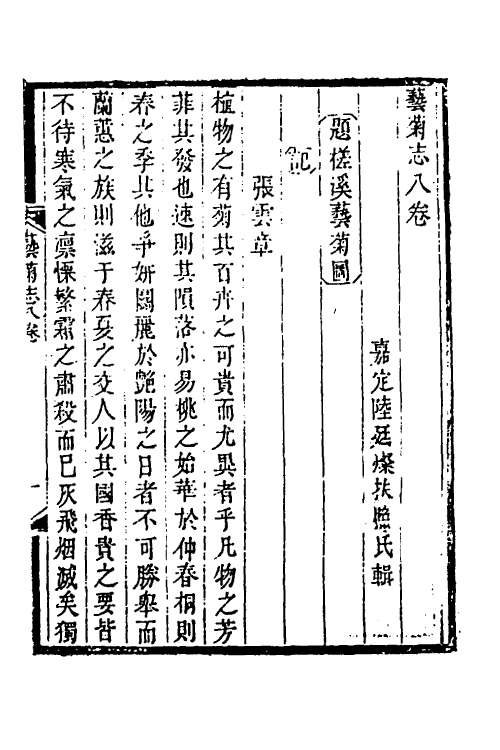 藝菊志八卷
嘉定陸廷燦扶照氏輯
題槎溪藝菊圖
記
張雲章
植物之有菊其百卉之可貴而尤異者乎凡物之芳
菲其發也速則其隕落亦易桃之始華於仲春桐則
春之季其他爭妍鬭麗於艶陽之日者不可勝舉而
蘭蕙之族則滋于春夏之交人以其國香貴之要皆
不待寒氣之凛慄繁霜之肅殺而已灰飛烟滅矣獨
藝菊志八卷
一